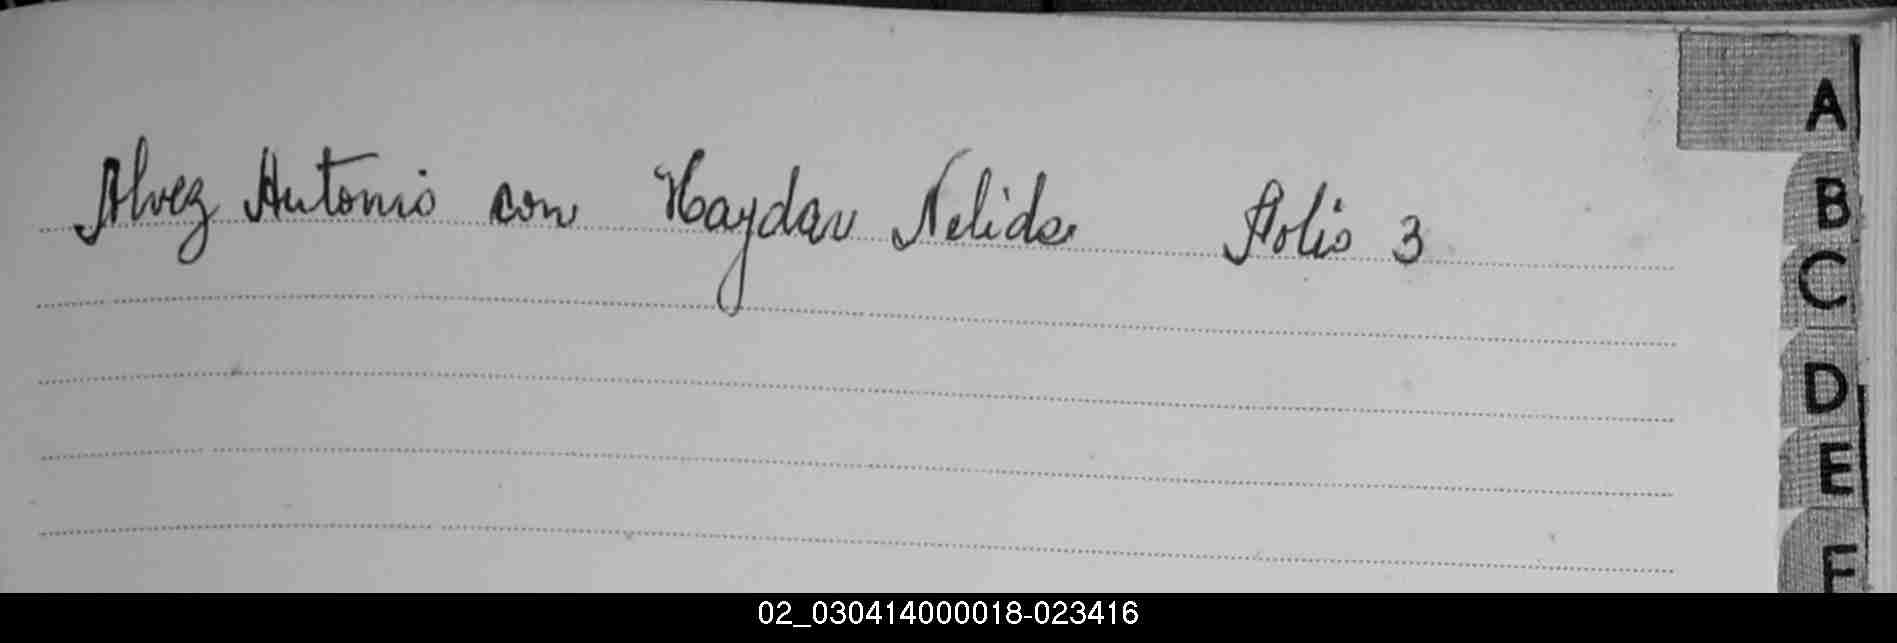 Alvez Antonio con Haydar Nelida Folio 3
A
B
C
D
E
F
02_030414000018-023416